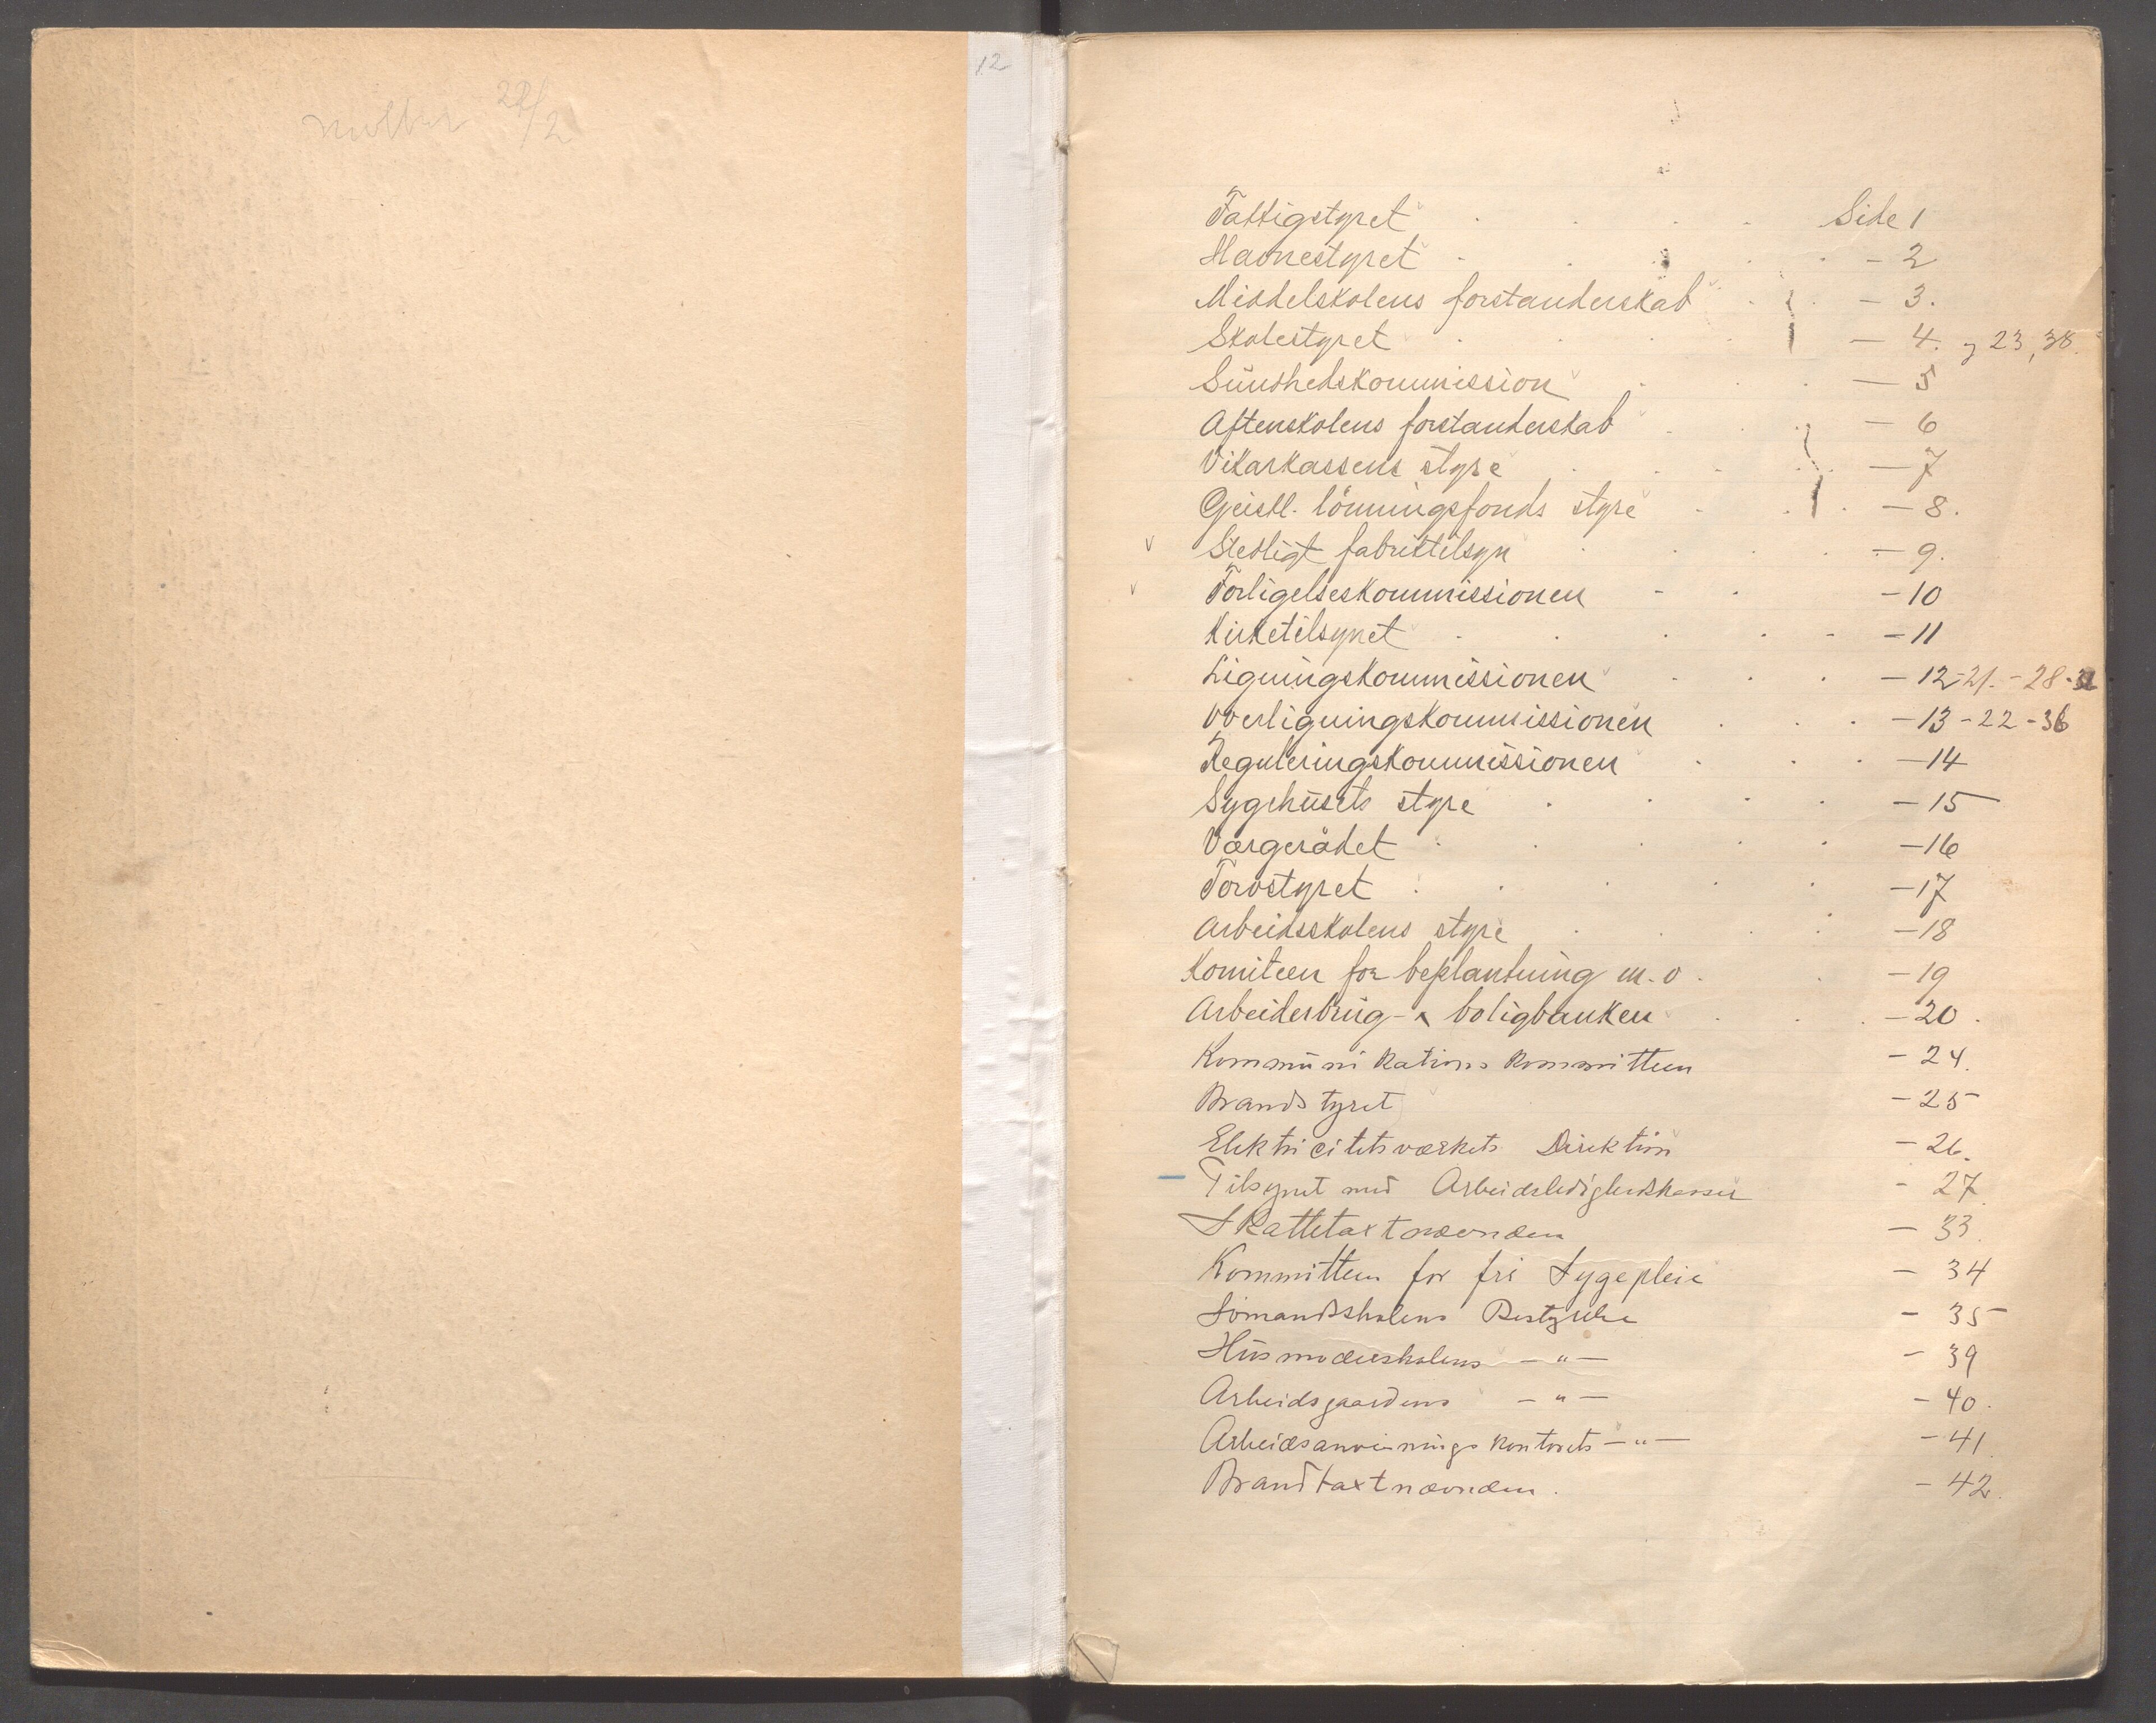 22/2
12
Fattigstyret Side 1
Havnestyret - 2
Middelskolens forstanderskab - 3.
Skolestyret - 4. og 23, 38.
Sundhedskommission - 5
Aftenskolens forstanderskab - 6
Vikarkassens styre - 7
Geistl. lönningsfonds styre - 8.
Stedligt fabriktilsyn - 9.
Forligelseskommissionen - 10
Kirketilsynet - 11
Ligningskommissionen - 12-21.-28-
Overligningskommissionen - 13-22-36
Reguleringskommissionen - 14
Sygehusets styre - 15
Værgerådet - 16
Torvstyret - 17
Arbeidsskolens styre - 18
Komiteen for beplantning m.v. - 19
Arbeiderbrug- & boligbanken - 20.
Kommunikations kommitteen - 24.
Brandstyret - 25
Elektricitetsværkets Direktion - 26.
Tilsynet med Arbeidsledighedskasser - 27
Skattetaxtnævnden - 33.
Kommitteen for fri Sygepleie - 34
Sömandsskolens Bestyrelse - 35
Husmoderskolens - " - - 39
Arbeidsgaardens - " - - 40.
Arbeidsanvisningskontorets - " - - 41
Brandtaxtnævnden. - 42.